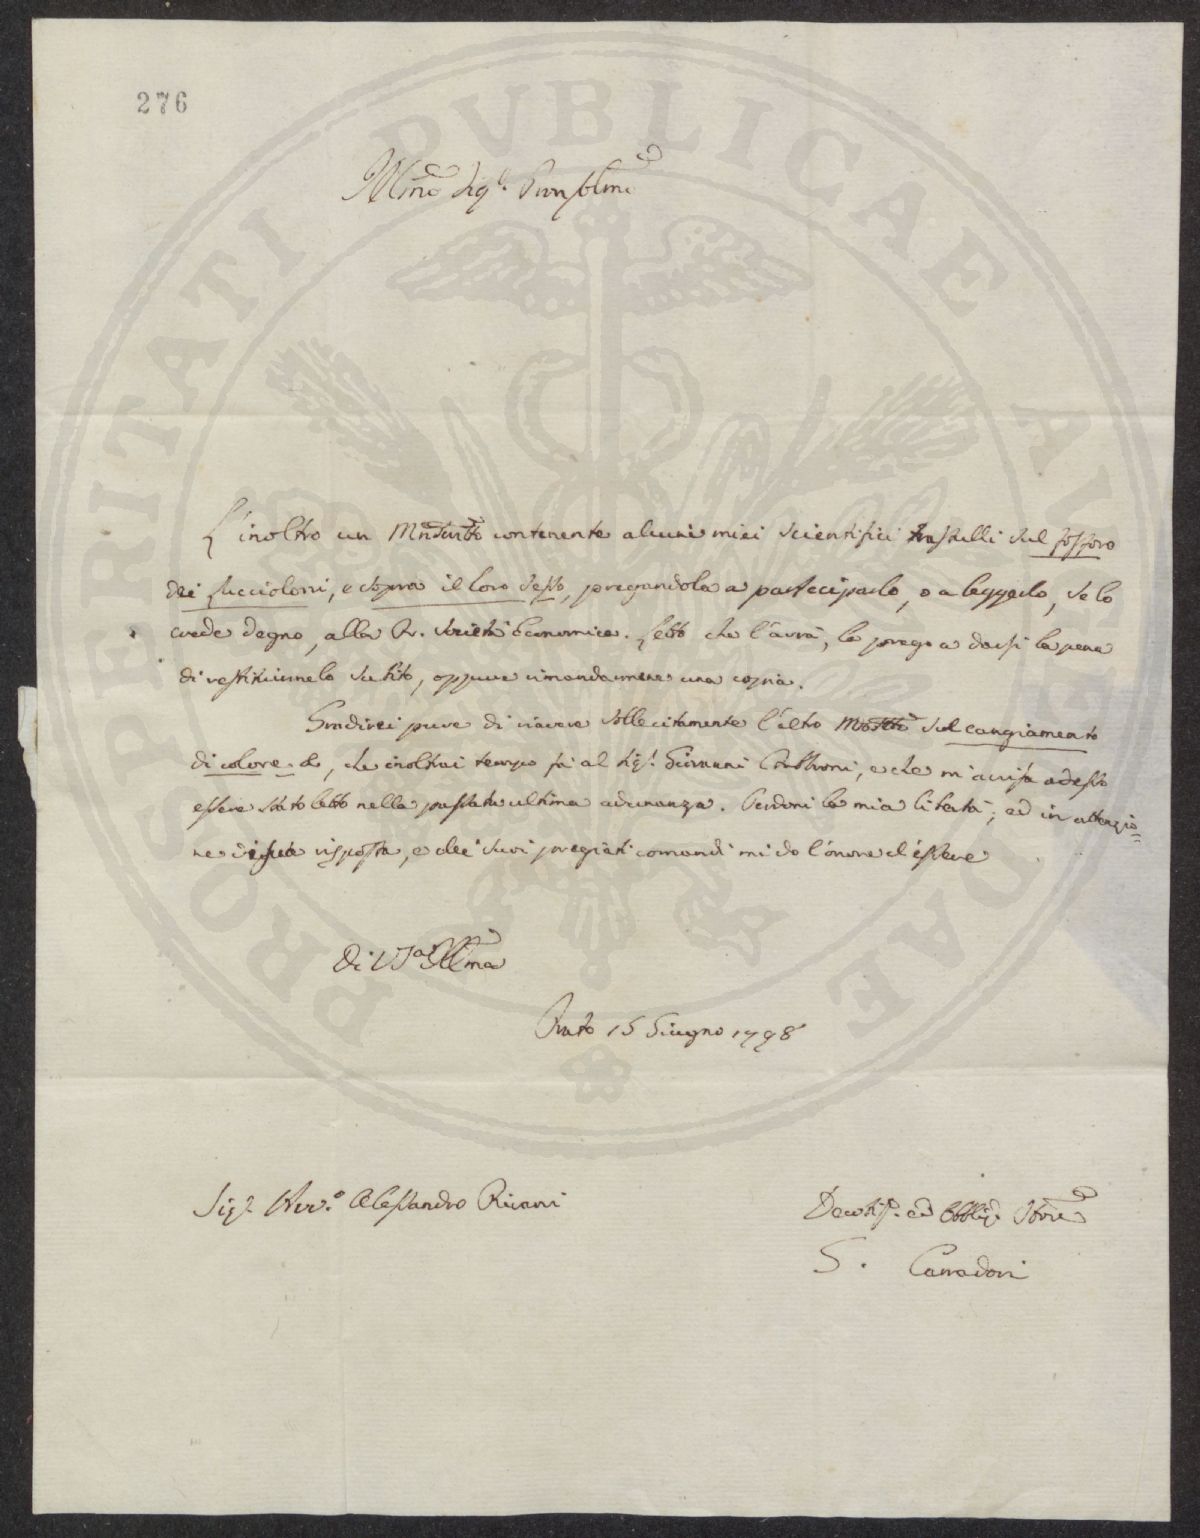 276
Illmo Sigr. Pron Colmo
L'inoltro un Mnscritto contenente alcuni miei scientifici trastulli sul fosforo
dei Luccioloni, e sopra il loro sesso, pregandola a parteciparlo, o a leggerlo, se lo
crede degno, alla R. Società Economica. Letto che l'avrà, la prego a darsi la pena
di restituirmelo subito, oppure rimandarmene una copia.
Gradirei pure di riavere sollecitamente l'altro Mnscritto sul cangiamento
di colore &, che inoltrai tempo fa al Sigr. Giovanni Fabbroni, e che m'avvisa adesso
essere stato letto nella passata ultima adunanza. Perdoni la mia libertà; ed in attenzio=
ne di sua risposta, e dei suoi pregiati comandi mi do l'onore d'essere
Di VSa Illma
Prato 15 Giugno 1798
Sigr. Alessandro Rivani
Devotiss. ed Obblig. Servre
G. Carradori
PROSPERITATI PVBLICAE AVGENDAE